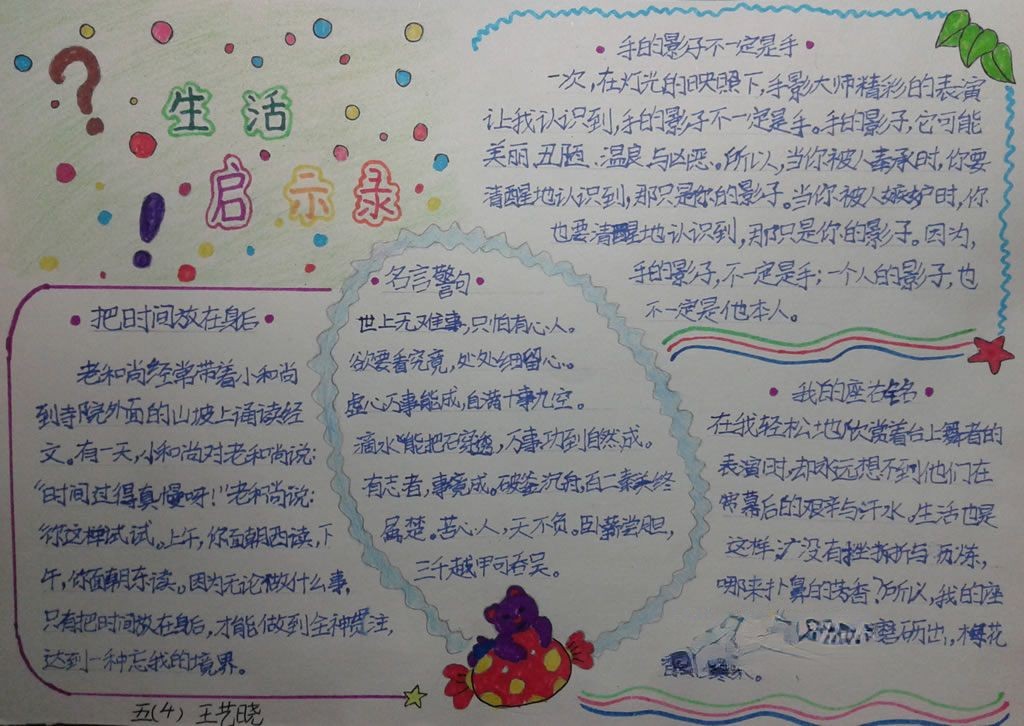 生活
启示录
手的影子不一定是手
一次,在灯光的映照下,手影大师精彩的表演
让我认识到,手的影子不一定是手。手的影子,它可能
美丽、丑陋、温良与凶恶。所以,当你被人奉承时,你要
清醒地认识到,那只是你的影子。当你被人嫉妒时,你
也要清醒地认识到,那只是你的影子。因为,
手的影子,不一定是手;一个人的影子,也
不一定是他本人。
把时间放在身后
老和尚经常带着小和尚
到寺院外面的山坡上诵读经
文。有一天,小和尚对老和尚说:
“时间过得真慢呀!”老和尚说:
你这样试试。上午,你面朝西读,下
午,你面朝东读。因为无论做什么事,
只有把时间放在身后,才能做到全神贯注,
达到一种忘我的境界。
名言警句
世上无难事,只怕有心人。
欲要看究竟,处处细留心。
虚心万事能成,自满十事九空。
滴水能把石穿透,万事功到自然成。
有志者,事竟成。破釜沉舟,百二秦关终
属楚。苦心人,天不负。卧薪尝胆,
三千越甲可吞吴。
我的座右铭
在我轻松地欣赏着台上舞者的
表演时,却永远想不到他们在
幕后的艰辛与汗水。生活也是
这样,没有挫折与历炼,
哪来扑鼻的芳香?所以,我的座
磨砺出,梅花
五(4) 王艺晓